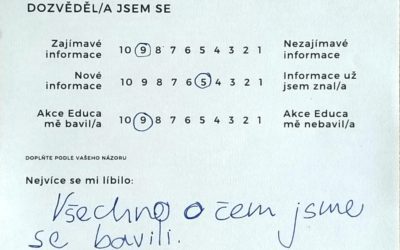 DOZVĚDĚL/A JSEM SE
Zajímavé informace 10 9 8 7 6 5 4 3 2 1 Nezajímavé informace
Nové informace 10 9 8 7 6 5 4 3 2 1 Informace už jsem znal/a
Akce Educa mě bavil/a 10 9 8 7 6 5 4 3 2 1 Akce Educa mě nebavil/a
DOPLŇTE PODLE VAŠEHO NÁZORU
Nejvíce se mi líbilo:
Všechno o čem jsme
se bavili.